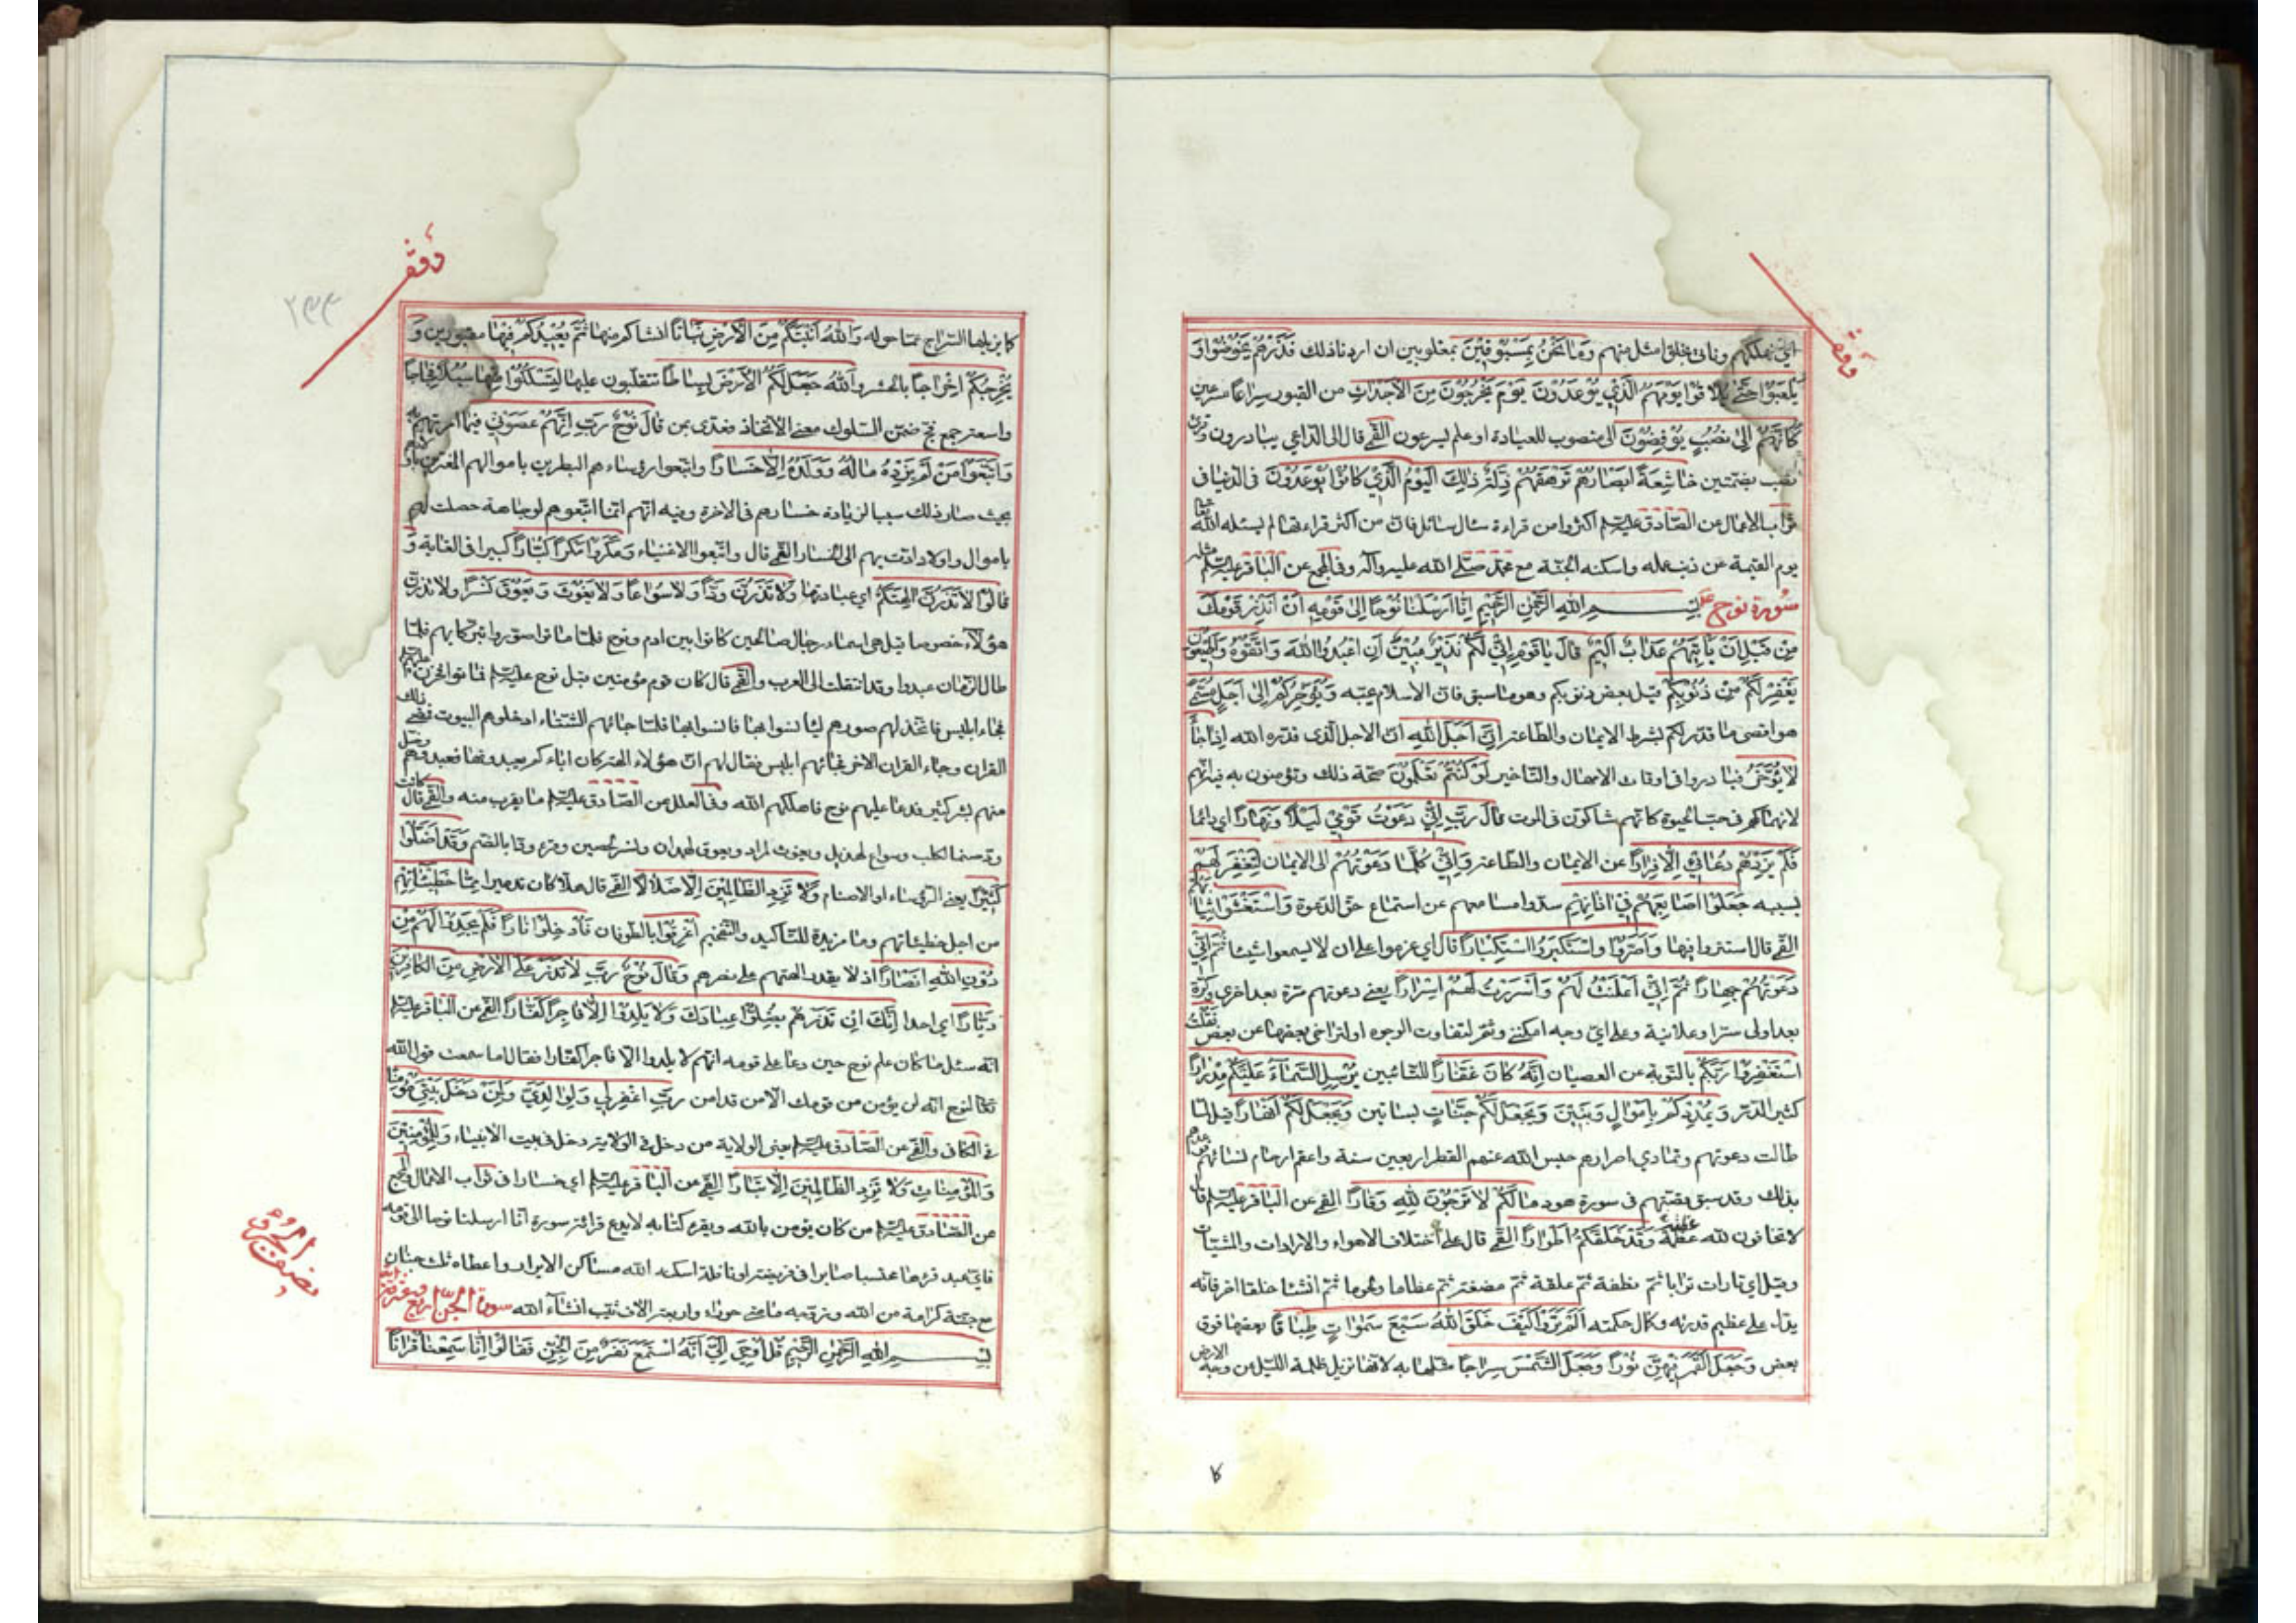 وقف
اي نهلكهم وناتي بخلق امثل منهم وَمَا نَحْنُ بِمَسْبُوقِينَ بمغلوبين ان اردنا ذلك فَذَرْهُمْ يَخُوضُوا وَ
يَلْعَبُوا حَتّٰى يُلَاقُوا يَوْمَهُمُ الَّذِي يُوعَدُونَ يَوْمَ يَخْرُجُونَ مِنَ الْأَجْدَاثِ من القبور سِرَاعًا مسرعين
كَاَنَّهُمْ اِلٰى نُصُبٍ يُوفِضُونَ الى منصوب للعبادة او علم يسرعون القمي قال الى الداعي يبادرون وقرئ
نصب بضمتين خَاشِعَةً اَبْصَارُهُمْ تَرْهَقُهُمْ ذِلَّةٌ ذٰلِكَ الْيَوْمُ الَّذِي كَانُوا يُوعَدُونَ في الدنيا في
ثواب الاعمال عن الصادق عليه السلم اكثروا من قراءة سئال سائل فان من اكثر قراءتها لم يسئله الله
يوم القيمة عن ذنب عمله واسكنه الجنة مع محمد صلى الله عليه وآله وفي المجمع عن الباقر عليه السلم مثله
سورة نوح بِسْمِ اللهِ الرَّحْمٰنِ الرَّحِيمِ اِنَّا اَرْسَلْنَا نُوحًا اِلٰى قَوْمِهِ اَنْ اَنْذِرْ قَوْمَكَ
مِنْ قَبْلِ اَنْ يَاْتِيَهُمْ عَذَابٌ اَلِيمٌ قَالَ يَا قَوْمِ اِنِّي لَكُمْ نَذِيرٌ مُبِينٌ اَنِ اعْبُدُوا اللهَ وَاتَّقُوهُ وَاَطِيعُونِ
يَغْفِرْ لَكُمْ مِنْ ذُنُوبِكُمْ قيل بعض ذنوبكم وهو ما سبق فان الاسلام يجبه وَيُؤَخِّرْكُمْ اِلٰى اَجَلٍ مُسَمًّى
هو اقصى ما قدر لكم بشرط الايمان والطاعة اِنَّ اَجَلَ اللهِ ان الاجل الذي قدره الله اِذَا جَاءَ
لَا يُؤَخَّرُ فبادروا في اوقات الامهال والتاخير لَوْ كُنْتُمْ تَعْلَمُونَ صحة ذلك وتؤمنون به فيه انهم
لانهماكهم في حب الحيوة كانهم شاكون في الموت قَالَ رَبِّ اِنِّي دَعَوْتُ قَوْمِي لَيْلًا وَنَهَارًا اي دائما
فَلَمْ يَزِدْهُمْ دُعَائِي اِلَّا فِرَارًا عن الايمان والطاعة وَاِنِّي كُلَّمَا دَعَوْتُهُمْ الى الايمان لِتَغْفِرَ لَهُمْ
بسببه جَعَلُوا اَصَابِعَهُمْ فِي اٰذَانِهِمْ سدوا مسامعهم عن استماع حق الدعوة وَاسْتَغْشَوْا ثِيَابَهُمْ
القمي قال استتروا بها وَاَصَرُّوا وَاسْتَكْبَرُوا اسْتِكْبَارًا قال اي عزموا على ان لا يسمعوا شيئا ثُمَّ اِنِّي
دَعَوْتُهُمْ جِهَارًا ثُمَّ اِنِّي اَعْلَنْتُ لَهُمْ وَاَسْرَرْتُ لَهُمْ اِسْرَارًا يعني دعوتهم مرة بعد اخرى وكرة
بعد اولى سرا وعلانية وعلى اي وجه امكنني وثم لتفاوت الوجوه او لتراخي بعضها عن بعض فَقُلْتُ
اسْتَغْفِرُوا رَبَّكُمْ بالتوبة عن العصيان اِنَّهُ كَانَ غَفَّارًا للتائبين يُرْسِلِ السَّمَاءَ عَلَيْكُمْ مِدْرَارًا
كثير الدر وَيُمْدِدْكُمْ بِاَمْوَالٍ وَبَنِينَ وَيَجْعَلْ لَكُمْ جَنَّاتٍ بساتين وَيَجْعَلْ لَكُمْ اَنْهَارًا قيل لما
طالت دعوتهم وتمادي اصرارهم حبس الله عنهم القطر اربعين سنة واعقم ارحام نسائهم فوعدهم
بذلك وقد سبق قصتهم في سورة هود مَا لَكُمْ لَا تَرْجُونَ لِلّٰهِ وَقَارًا القمي عن الباقر عليه السلم قال
لا تخافون لله عظمة وَقَدْ خَلَقَكُمْ اَطْوَارًا القمي قال على اختلاف الاهواء والارادات والمشيات
وقيل اي تارات ترابا ثم نطفة ثم علقة ثم مضغة ثم عظاما ولحوما ثم انشئا خلقا اخر فانه
يدل على عظيم قدرته وكمال حكمته اَلَمْ تَرَوْا كَيْفَ خَلَقَ اللهُ سَبْعَ سَمٰوَاتٍ طِبَاقًا بعضها فوق
بعض وَجَعَلَ الْقَمَرَ فِيهِنَّ نُورًا وَجَعَلَ الشَّمْسَ سِرَاجًا مثلها به لانها تزيل ظلمة الليل عن وجه الارض
كا
وقف
كما يزيلها السراج عما حوله وَاللهُ اَنْبَتَكُمْ مِنَ الْاَرْضِ نَبَاتًا انشاكم منها ثُمَّ يُعِيدُكُمْ فِيهَا مقبورين وَ
يُخْرِجُكُمْ اِخْرَاجًا بالحشر وَاللهُ جَعَلَ لَكُمُ الْاَرْضَ بِسَاطًا تتقلبون عليها لِتَسْلُكُوا مِنْهَا سُبُلًا فِجَاجًا
واسعة جمع فج ضمن السلوك معنى الاتخاذ فعدى بمن قَالَ نُوحٌ رَبِّ اِنَّهُمْ عَصَوْنِي فيما امرتهم به
وَاتَّبَعُوا مَنْ لَمْ يَزِدْهُ مَالُهُ وَوَلَدُهُ اِلَّا خَسَارًا واتبعوا رؤساءهم البطرين باموالهم المغترين باولادهم
بحيث صار ذلك سببا لزيادة خسارهم في الاخرة وفيه انهم انما اتبعوهم لوجاهة حصلت لهم
باموال واولاد ادت بهم الى الخسار القمي قال واتبعوا الاغنياء وَمَكَرُوا مَكْرًا كُبَّارًا كبيرا في الغاية وَ
قَالُوا لَا تَذَرُنَّ اٰلِهَتَكُمْ اي عبادتها وَلَا تَذَرُنَّ وَدًّا وَلَا سُوَاعًا وَلَا يَغُوثَ وَيَعُوقَ وَنَسْرًا ولا تذرن
هؤلاء خصوصا قيل هي اسماء رجال صالحين كانوا بين ادم ونوح فلما ماتوا صوروا تبركا بهم فلما
طال الزمان عبدوا وقد انتقلت الى العرب والقمي قال كان قوم مؤمنين قبل نوح عليه السلم فماتوا فحزن عليهم الناس
فجاء ابليس فاتخذ لهم صورهم ليانسوا بها فانسوا بها فلما جائهم الشتاء ادخلوهم البيوت فمضى ذلك
القرن وجاء القرن الاخر فجائهم ابليس فقال لهم ان هؤلاء الهة كان اباءكم يعبدونها فعبدوهم وضل
منهم بشر كثير فدعا عليهم نوح فاهلكهم الله وفي العلل عن الصادق عليه السلم ما يقرب منه والقمي قال كانت
ود صنما لكلب وسواع لهذيل ويغوث لمراد ويعوق لهمدان ونسر لحصين وَقَدْ اَضَلُّوا
كَثِيرًا يعني الرؤساء او الاصنام وَلَا تَزِدِ الظَّالِمِينَ اِلَّا ضَلَالًا القمي قال هلاكا وتدميرا مِمَّا خَطِيئَاتِهِمْ
من اجل خطيئاتهم وما مزيدة للتاكيد والتفخيم اُغْرِقُوا بالطوفان فَاُدْخِلُوا نَارًا فَلَمْ يَجِدُوا لَهُمْ مِنْ
دُونِ اللهِ اَنْصَارًا اذ لا يقدر الهتهم على نصرهم وَقَالَ نُوحٌ رَبِّ لَا تَذَرْ عَلَى الْاَرْضِ مِنَ الْكَافِرِينَ
دَيَّارًا اي احدا اِنَّكَ اِنْ تَذَرْهُمْ يُضِلُّوا عِبَادَكَ وَلَا يَلِدُوا اِلَّا فَاجِرًا كَفَّارًا القمي عن الباقر عليه السلم
انه سئل ما كان علم نوح حين دعا على قومه انهم لا يلدوا الا فاجرا كفارا فقال اما سمعت قول الله
تعالى لنوح انه لن يؤمن من قومك الا من قد امن رَبِّ اغْفِرْ لِي وَلِوَالِدَيَّ وَلِمَنْ دَخَلَ بَيْتِيَ مُؤْمِنًا
في الكافي والقمي عن الصادق عليه السلم يعني الولاية من دخل في الولاية دخل في بيت الانبياء وَلِلْمُؤْمِنِينَ
وَالْمُؤْمِنَاتِ وَلَا تَزِدِ الظَّالِمِينَ اِلَّا تَبَارًا القمي عن الباقر عليه السلم اي خسارا في ثواب الاعمال والمجمع
عن الصادق عليه السلم من كان يؤمن بالله ويقرء كتابه لا يدع قراءة سورة انا ارسلنا نوحا الى قومه
فاي عبد قرءها محتسبا صابرا في فريضة او نافلة اسكنه الله مساكن الابرار واعطاه ثلث جنان
مع جنة كرامة من الله وزوجه مائتي حوراء واربعة الاف ثيب انشاء الله سورة الجن
بِسْمِ اللهِ الرَّحْمٰنِ الرَّحِيمِ قُلْ اُوحِيَ اِلَيَّ اَنَّهُ اسْتَمَعَ نَفَرٌ مِنَ الْجِنِّ فَقَالُوا اِنَّا سَمِعْنَا قُرْاٰنًا
نصف الجزء